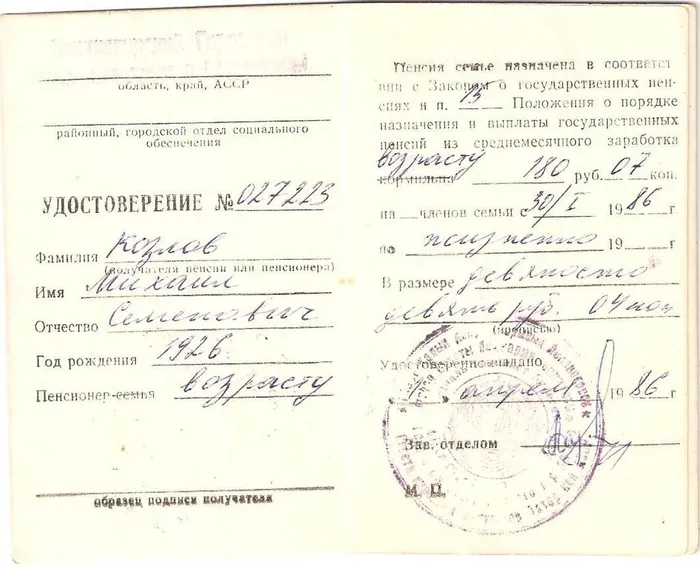 область, край, АССР
районный, городской отдел социального
обеспечения
УДОСТОВЕРЕНИЕ № 027223
Фамилия Козлов
(получателя пенсии или пенсионера)
Имя Михаил
Отчество Семенович
Год рождения 1926
Пенсионер-семья возрасту
образец подписи получателя
Пенсия семье назначена в соответст
вии с Законом о государственных пен-
сиях и п. 15 Положения о порядке
назначения и выплаты государственных
пенсий из среднемесячного заработка
возрасту
кормильца 180 руб. 07 коп.
на членов семьи с 30/I 1986 г
по жизненно 19 г
В размере девяносто
девять руб. 04 коп
(прописью)
Удостоверение выдано
" апрель 1986 г
Зав. отделом
М. П.